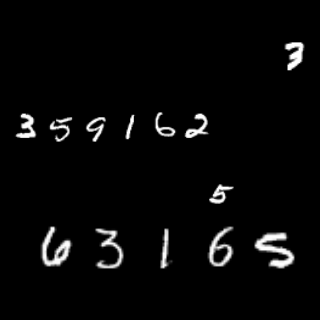 3
359162
5
63165